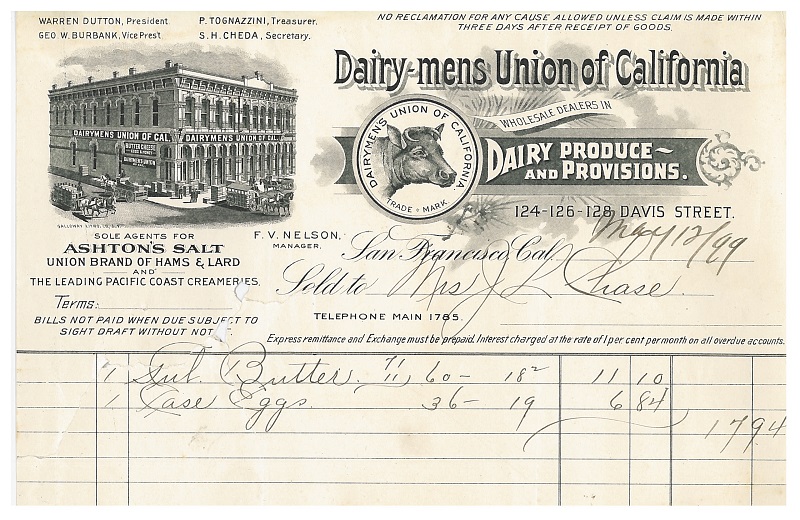 WARREN DUTTON, President
GEO. W. BURBANK, Vice Pres't
P. TOGNAZZINI, Treasurer.
S. H. CHEDA, Secretary.
NO RECLAMATION FOR ANY CAUSE ALLOWED UNLESS CLAIM IS MADE WITHIN
THREE DAYS AFTER RECEIPT OF GOODS.
Dairy-mens Union of California
WHOLESALE DEALERS IN
DAIRY PRODUCE
AND PROVISIONS.
DAIRYMEN'S UNION OF CALIFORNIA.
TRADE MARK
DAIRYMENS UNION OF CAL. DAIRYMENS UNION OF CAL.
BUTTER CHEESE
DAIRYMENS UNION
124-126-128 DAVIS STREET.
SOLE AGENTS FOR
ASHTON'S SALT
UNION BRAND OF HAMS & LARD
AND
THE LEADING PACIFIC COAST CREAMERIES.
F. V. NELSON,
MANAGER.
San Francisco, Cal. May 12/99
Sold to Mrs J L Chase
Terms:
BILLS NOT PAID WHEN DUE SUBJECT TO
SIGHT DRAFT WITHOUT
TELEPHONE MAIN 1785.
Express remittance and Exchange must be prepaid. Interest charged at the rate of 1 per cent per month on all overdue accounts.
1 Tub. Butter. 71/11 60- 18½ 11 10
1 Case Eggs. 36- 19 6 84
17 94